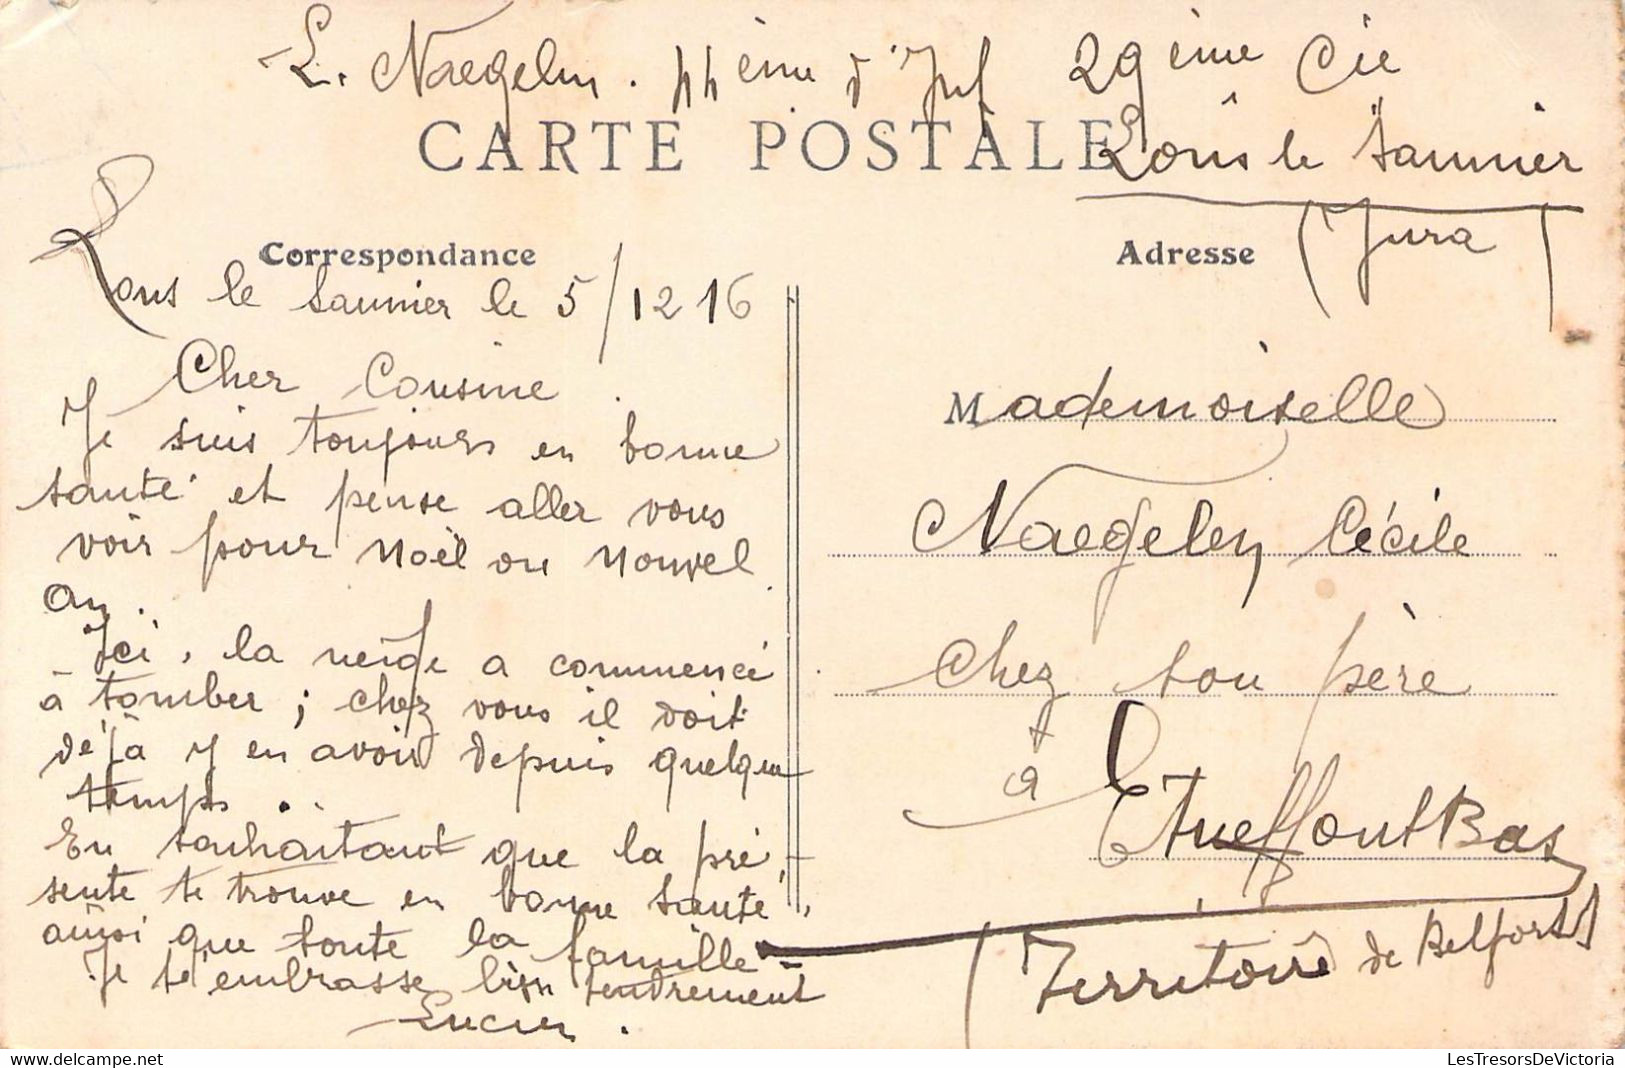 L. Naegelen. 44ème d'Inf 29ème Cie
CARTE POSTALE
Lons le Saunier
(Jura)
Correspondance
Adresse
Lons le Saunier le 5/12 16
Cher Cousine.
Je suis toujours en bonne
santé et pense aller vous
voir pour Noël ou Nouvel
An.
Ici, la neige a commencé
à tomber ; chez vous il doit
déjà y en avoir depuis quelque
temps.
En souhaitant que la pré-
sente te trouve en bonne santé,
ainsi que toute la famille -
Je t'embrasse bien tendrement
Lucien.
Mademoiselle
Naegelen Cécile
Chez son père
à Etueffont Bas
(Territoire de Belfort)
LesTresorsDeVictoria